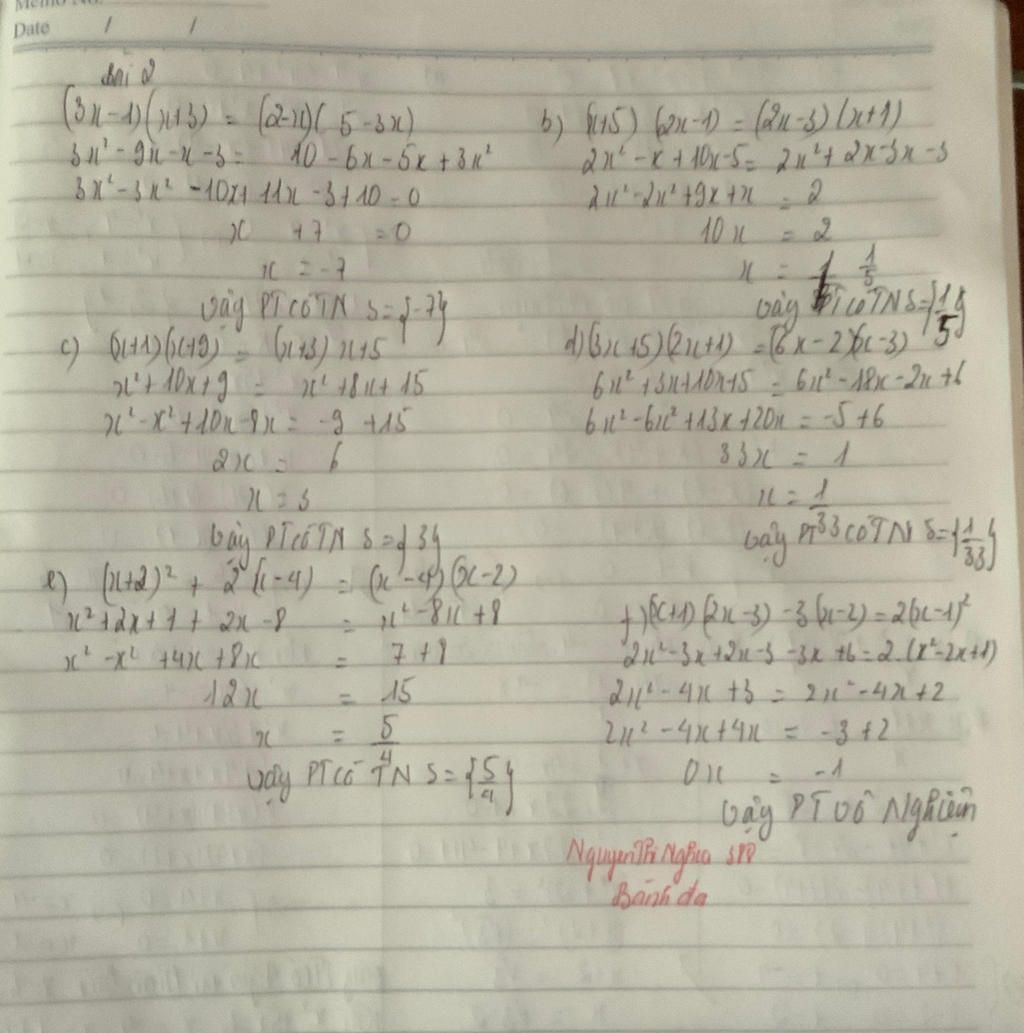 Memo No.
Date / /
Bài 2
(3x-1)(x+3) = (2-x)(5-3x)
3x² - 9x - x - 3 = 10 - 6x - 5x + 3x²
3x² - 3x² - 10x + 11x - 3 + 10 = 0
x + 7 = 0
x = -7
Vậy PT có TN S = {-7}
b) (x+5)(2x-1) = (2x-3)(x+1)
2x² - x + 10x - 5 = 2x² + 2x - 3x - 3
2x² - 2x² + 9x + x = 2
10x = 2
x = 1/5
Vậy PT có TN S = {1/5}
c) (x+1)(x+9) = (x+3) x+5
x² + 10x + 9 = x² + 8x + 15
x² - x² + 10x - 8x = -9 + 15
2x = 6
x = 3
Vậy PT có TN S = {3}
d) (3x+5)(2x+1) = (6x-2)(x-3)
6x² + 3x + 10x + 5 = 6x² - 18x - 2x + 6
6x² - 6x² + 13x + 20x = -5 + 6
33x = 1
x = 1/33
Vậy PT có TN S = {1/33}
e) (x+2)² + 2(x-4) = (x-4)(x-2)
x² + 2x + 1 + 2x - 8 = x² - 8x + 8
x² - x² + 4x + 8x = 7 + 8
12x = 15
x = 5/4
Vậy PT có TN S = {5/4}
f) (x+1)(2x-3) - 3(x-2) = 2(x-1)²
2x² - 3x + 2x - 3 - 3x + 6 = 2.(x² - 2x + 1)
2x² - 4x + 3 = 2x² - 4x + 2
2x² - 4x + 4x = -3 + 2
0x = -1
Vậy PT vô Nghiệm
Nguyen Thi Nghia
Bánh đa